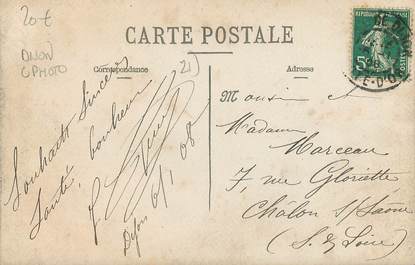 20€
DIJON
CPHOTO
CARTE POSTALE
Correspondance
Adresse
21)
Souhaits Sincères
Santé, bonheur
Dijon 6/1 08
Monsieur et
Madame
Marceau
7, rue Gloriette
Châlon s/ Saône
(S. & Loire)
5c